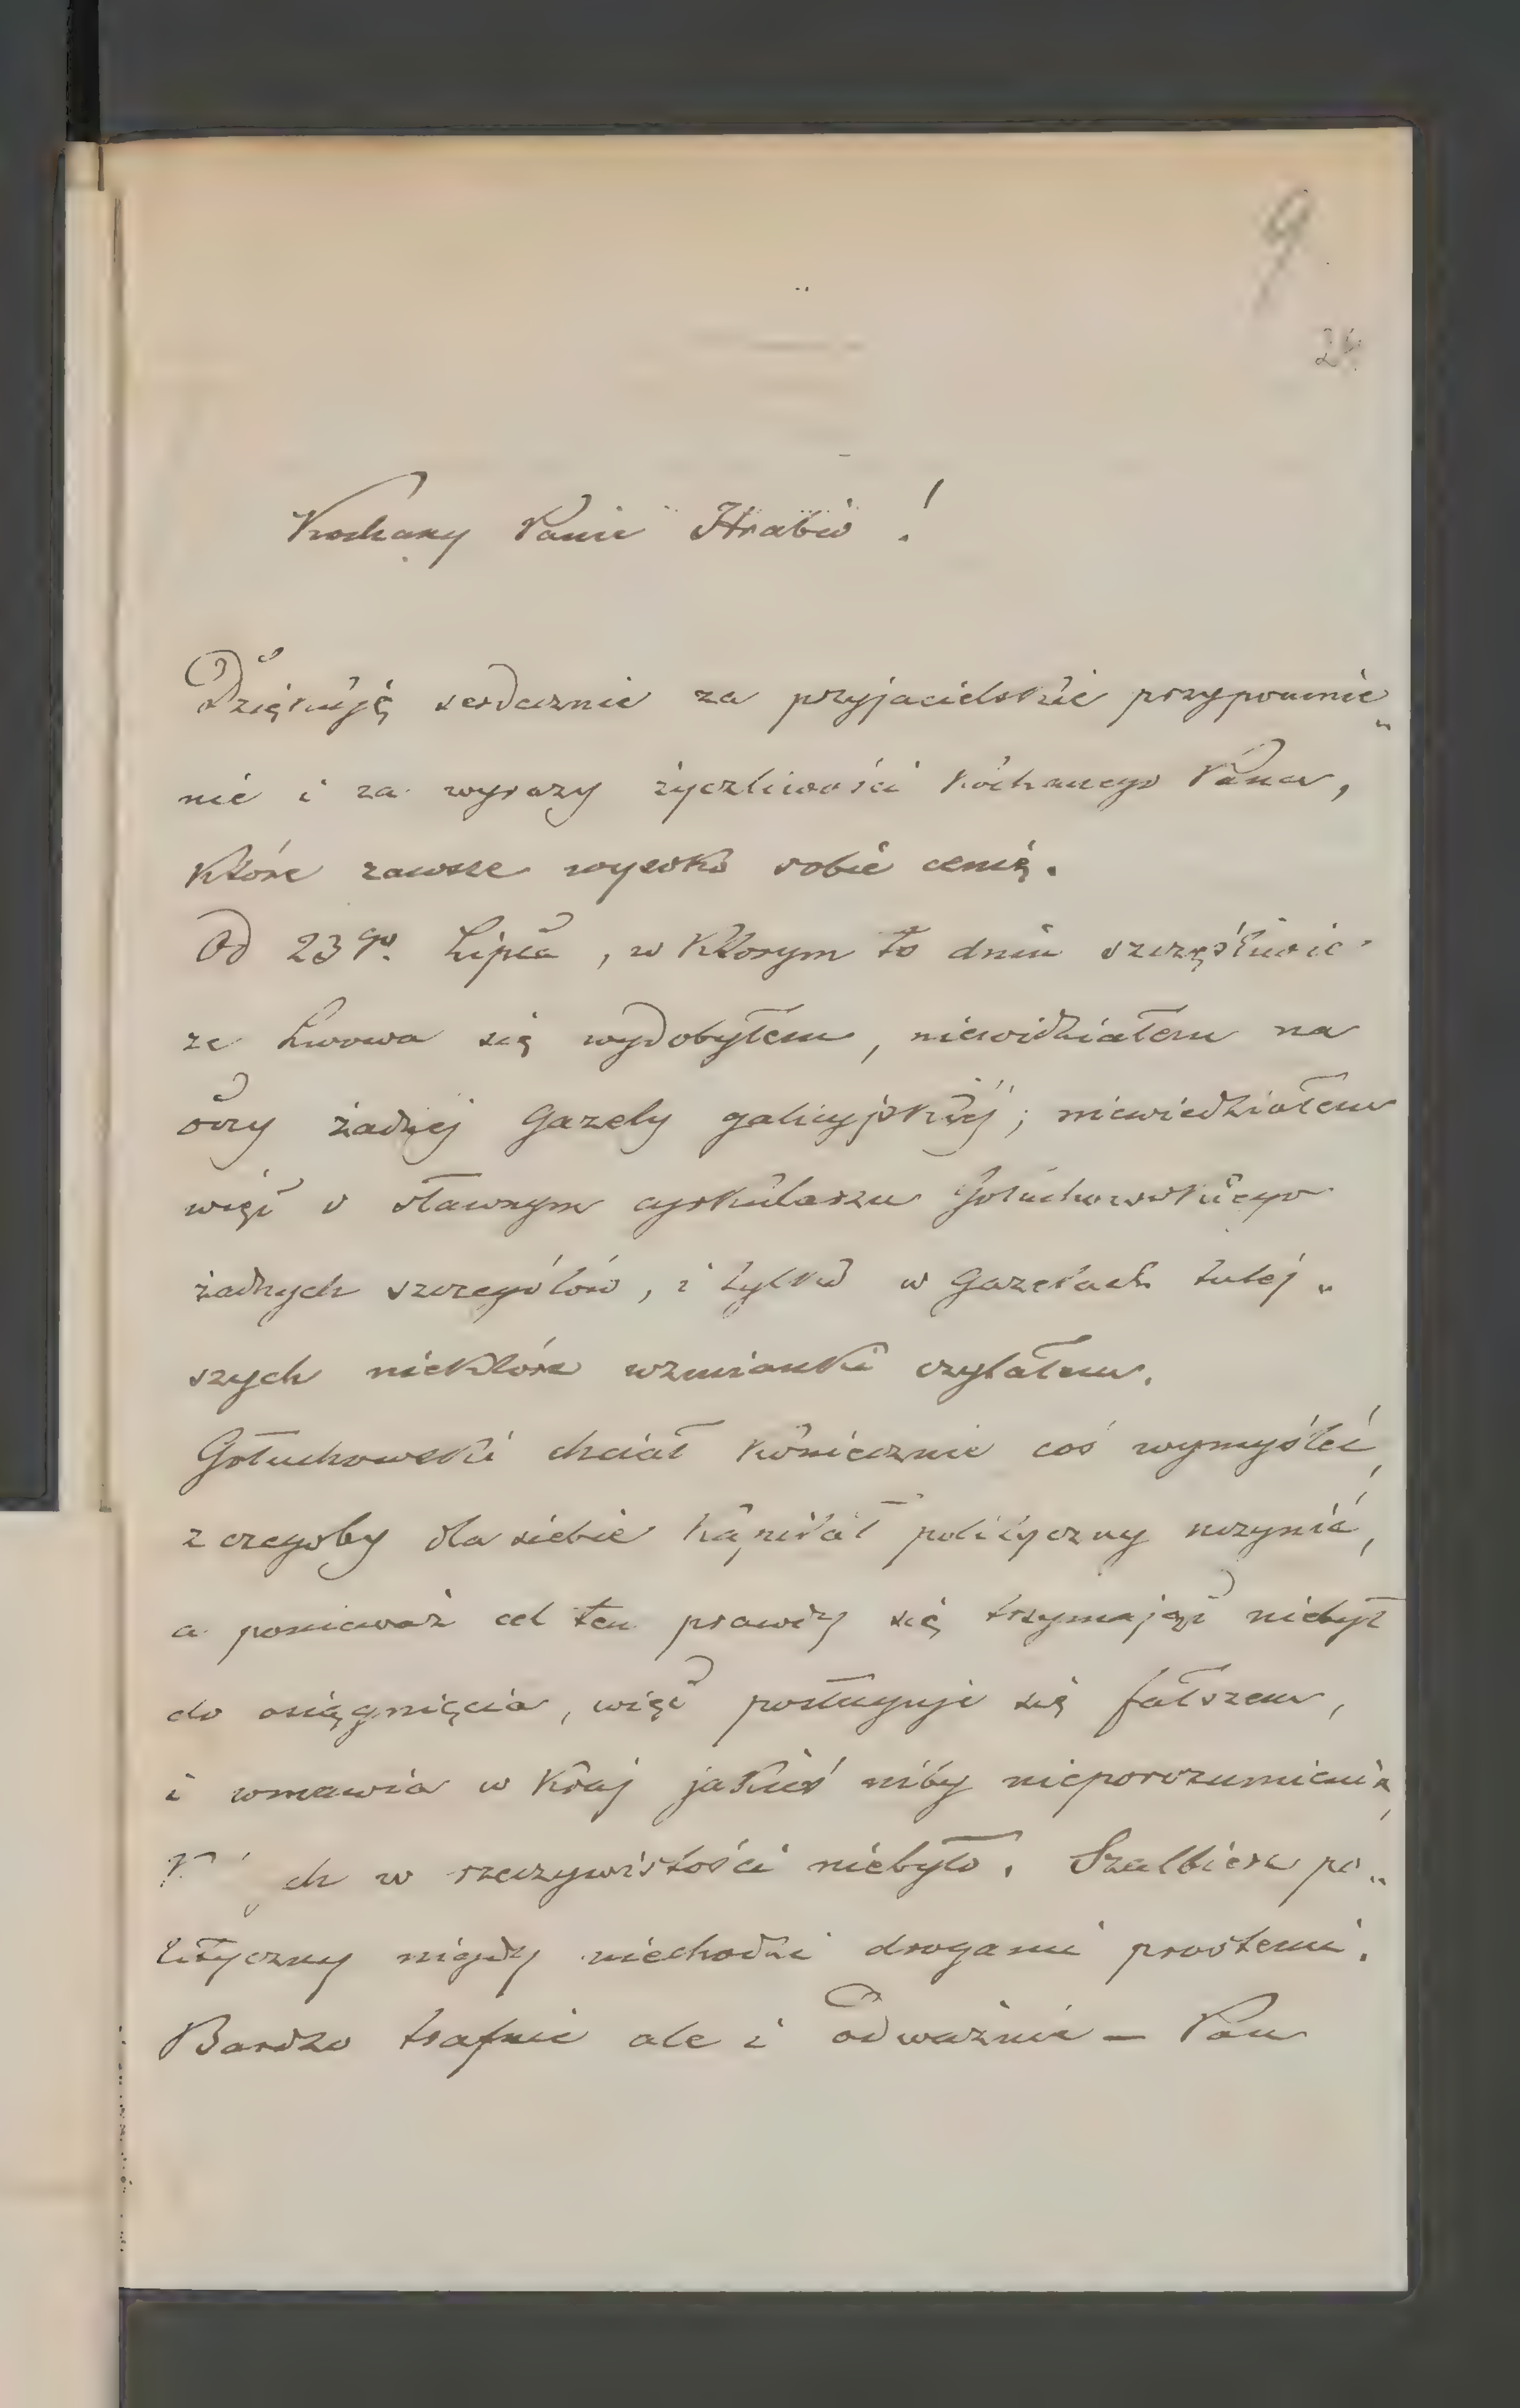 9
24
Kochany Panie Hrabio!
Dziękuję serdecznie za przyjacielskie przypomnie„
nie i za wyrazy życzliwości kochanego Pana,
które zawsze wysoko sobie cenię.
Od 23go. Lipca, w którym to dniu szczęśliwie
ze Lwowa się wydobyłem, niewidziałem na
oczy żadnej Gazety galicyjskiéj; niewiedziałem
więc o sławnym cyrkularzu Gołuchowskiego
żadnych szczegółów, i tylko w Gazetach tutéj„
szych niektóre wzmianki czytałem.
Gołuchowski chciał koniecznie coś wymyśleć,
z czegoby dla siebie kapitał polityczny uczynić,
a ponieważ cel ten prawdy się trzymając niebył
do osiągnięcia, więc posługuje się fałszem,
i wmawia w kraj jakieś niby nieporozumienia,
ch w rzeczywistości niebyło. Szalbierz po„
lityczny nigdy niechodzi drogami prostemi.
Bardzo trafnie ale i odważnie – Pan